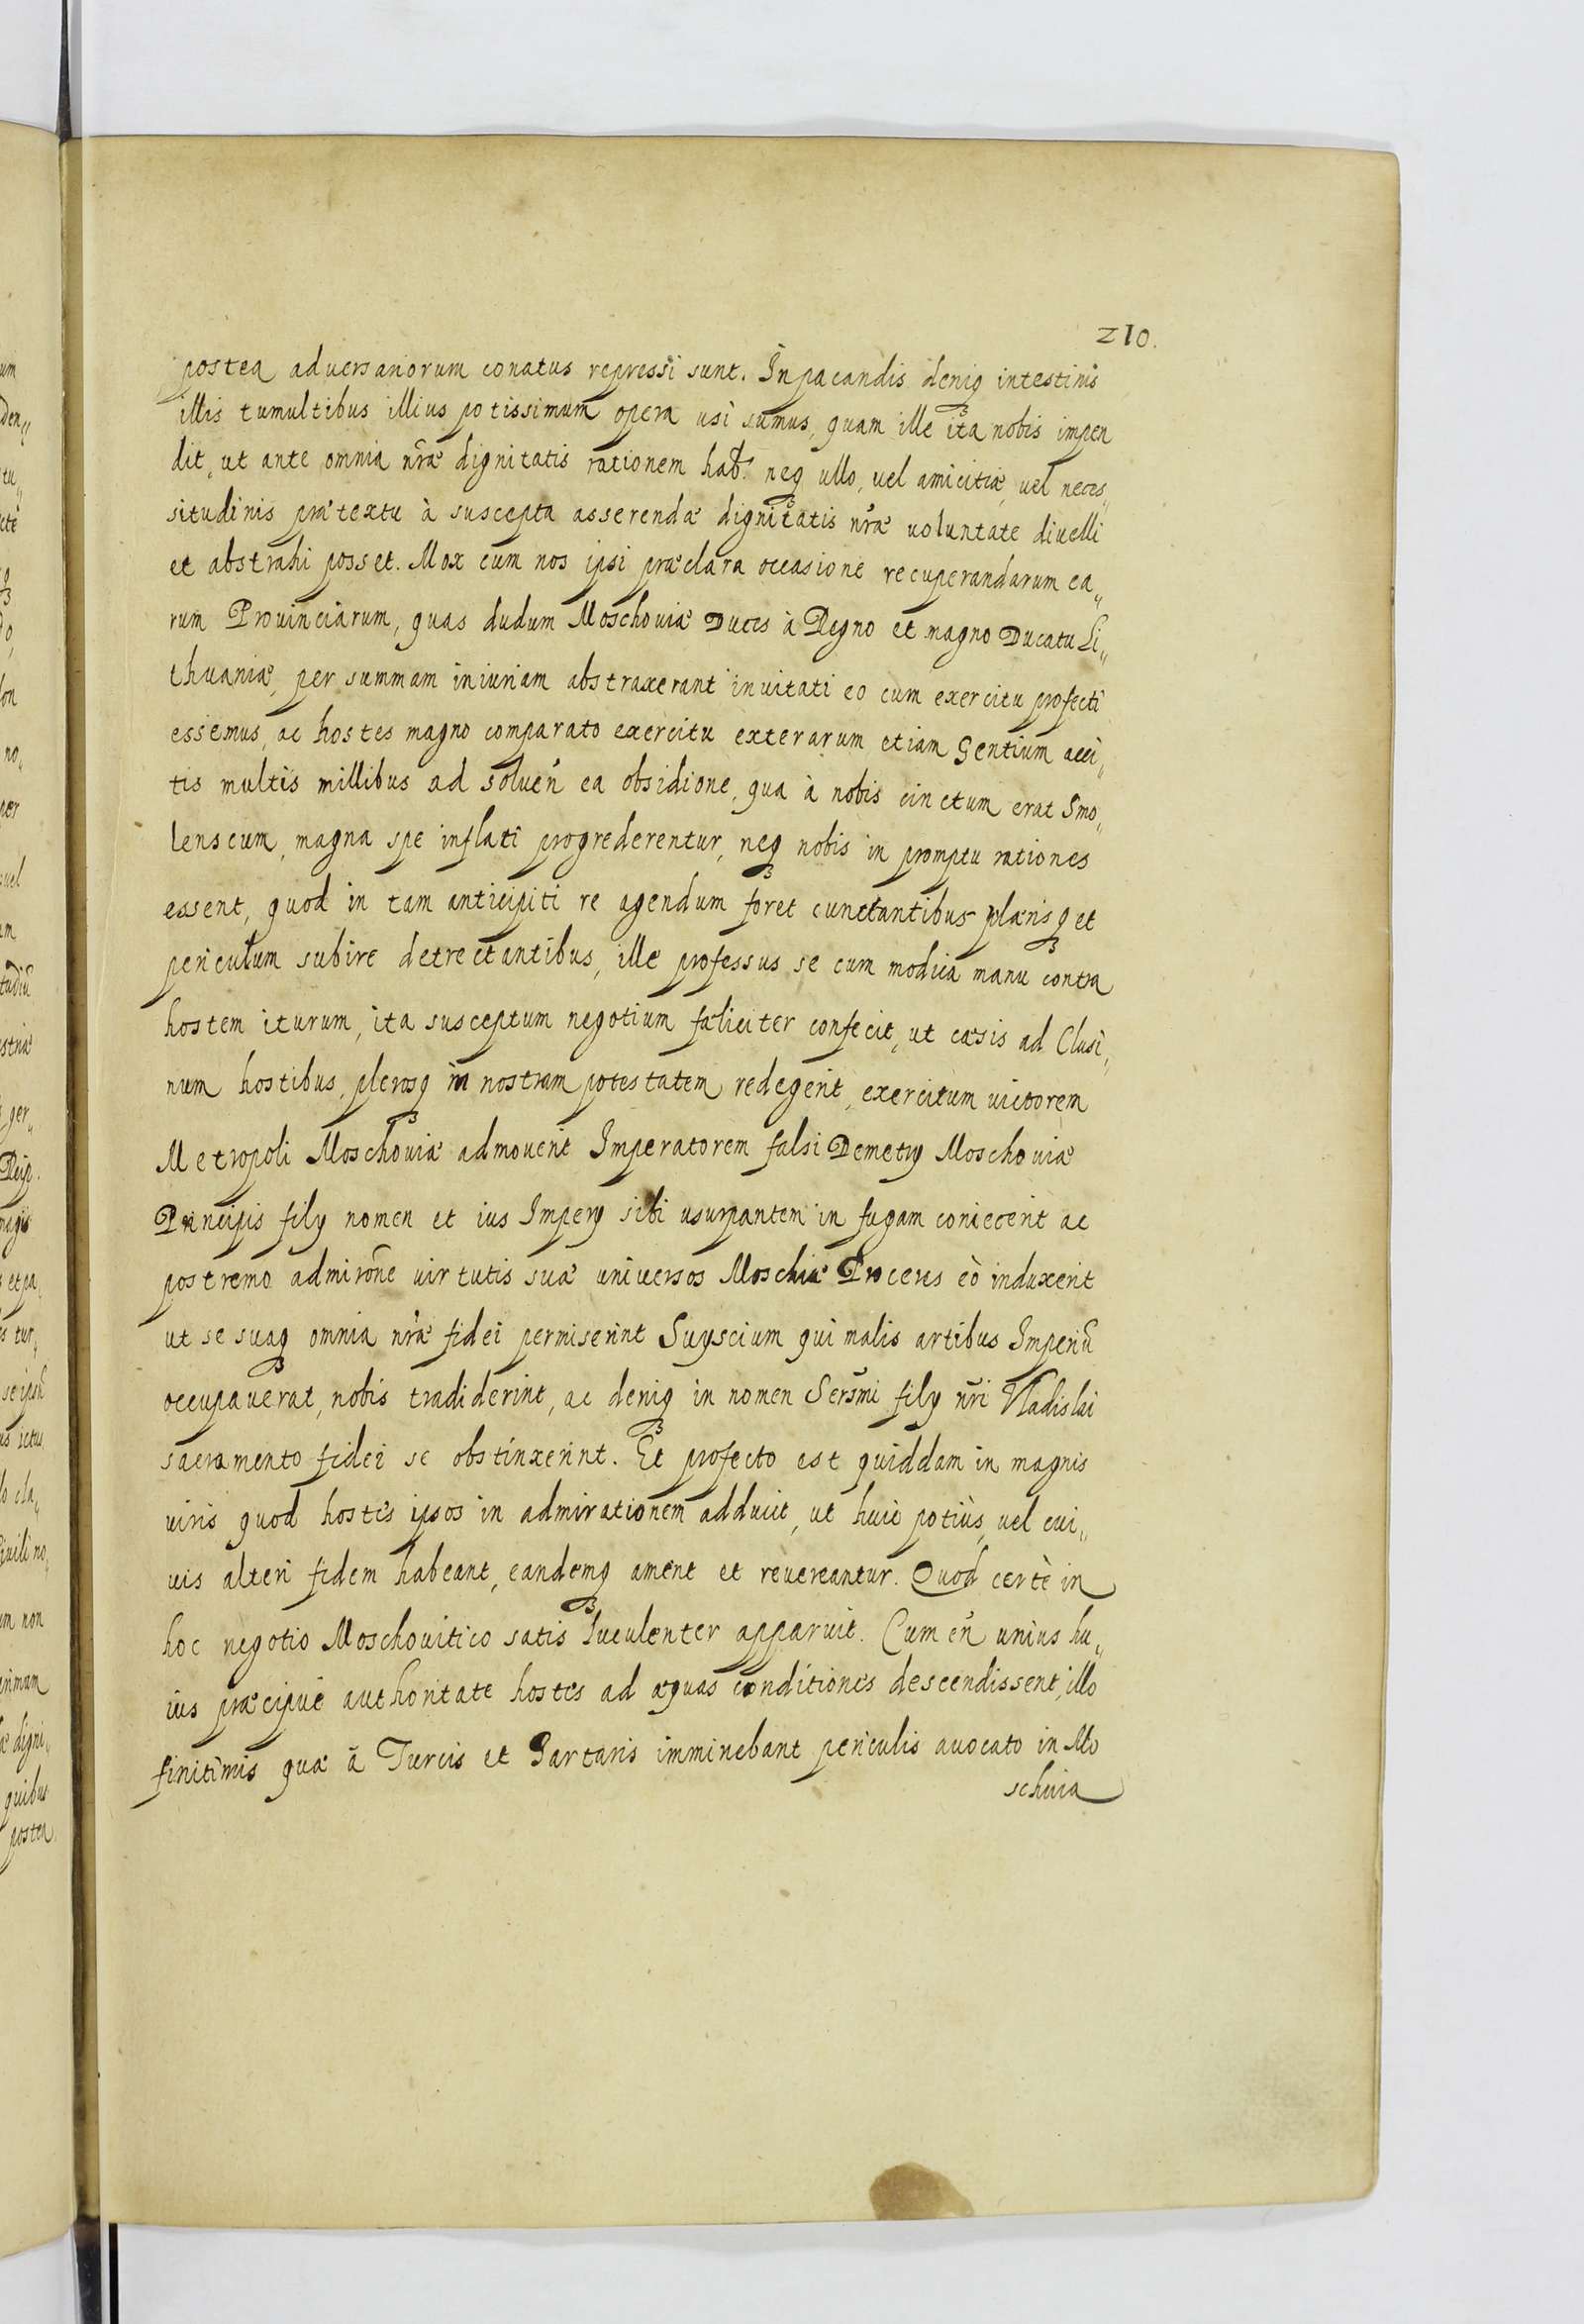 210.
postea adversariorum conatus repressi sunt. In pacandis deniq intestinis
illis tumultibus illius potissimum opera usi sumus, quam ille ita nobis impen
dit, ut ante omnia nræ dignitatis rationem hab. neq ullo, vel amicitiæ, vel neces„
situdinis prætextu à suscepta asserendæ dignitatis nræ voluntate divelli
et abstrahi posset. Mox cum nos ipsi præclara occasione recuperandarum ea„
rum Provinciarum, quas dudum Moschoviæ Duces à Regno et magno Ducatu Li„
thvaniæ, per summam iniuriam abstraxerant invitati eo cum exercitu profecti
essemus, ac hostes magno comparato exercitu exterarum etiam Gentium acci„
tis multis millibus ad solven ea obsidione, qua à nobis cinctum erat Smo„
lenscum, magna spe inflati progrederentur, neq nobis in promptu rationes
essent, quod in tam anticipiti re agendum foret cunctantibus plærisq et
periculum subire detrectantibus, ille professus se cum modica manu contra
hostem iturum, ita susceptum negotium fæliciter confecit, ut cæsis ad Clusi„
num hostibus, plerosq in nostram potestatem redegerit, exercitum victorem
Metropoli Moschoviæ admoverit Imperatorem falsi Demetrÿ Moschoviæ
Principis filÿ nomen et ius Imperÿ sibi usurpantem in fugam coniecerit ac
postremo admirõne virtutis suæ universos Moschiæ Proceres eò induxerit
ut se suaq omnia nræ fidei permiserint Suyscium qui malis artibus Imperiũ
occupaverat, nobis tradiderint, ac deniq in nomen Sersmi filÿ nri Vladislai
sacramento fidei se obstinxerint. Et profecto est quiddam in magnis
viris quod hostes ipsos in admirationem adducit, ut huic potiùs, vel cui„
vis alteri fidem habeant, eandemq ament et revereantur. Quod certè in
hoc negotio Moschovitico satis luculenter apparuit. Cum en unius hu„
ius præcipuè authoritate hostes ad æquas conditiones descendissent, illo
finitimis quæ à Turcis et Tartaris imminebant periculis avocato in Mo
schvia